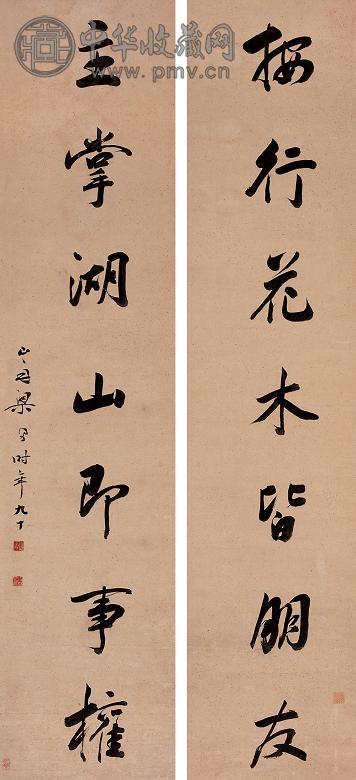 按行花木皆朋友
主掌湖山即事權
山舟梁同書時年九十
中华收藏网
www.pmv.cn